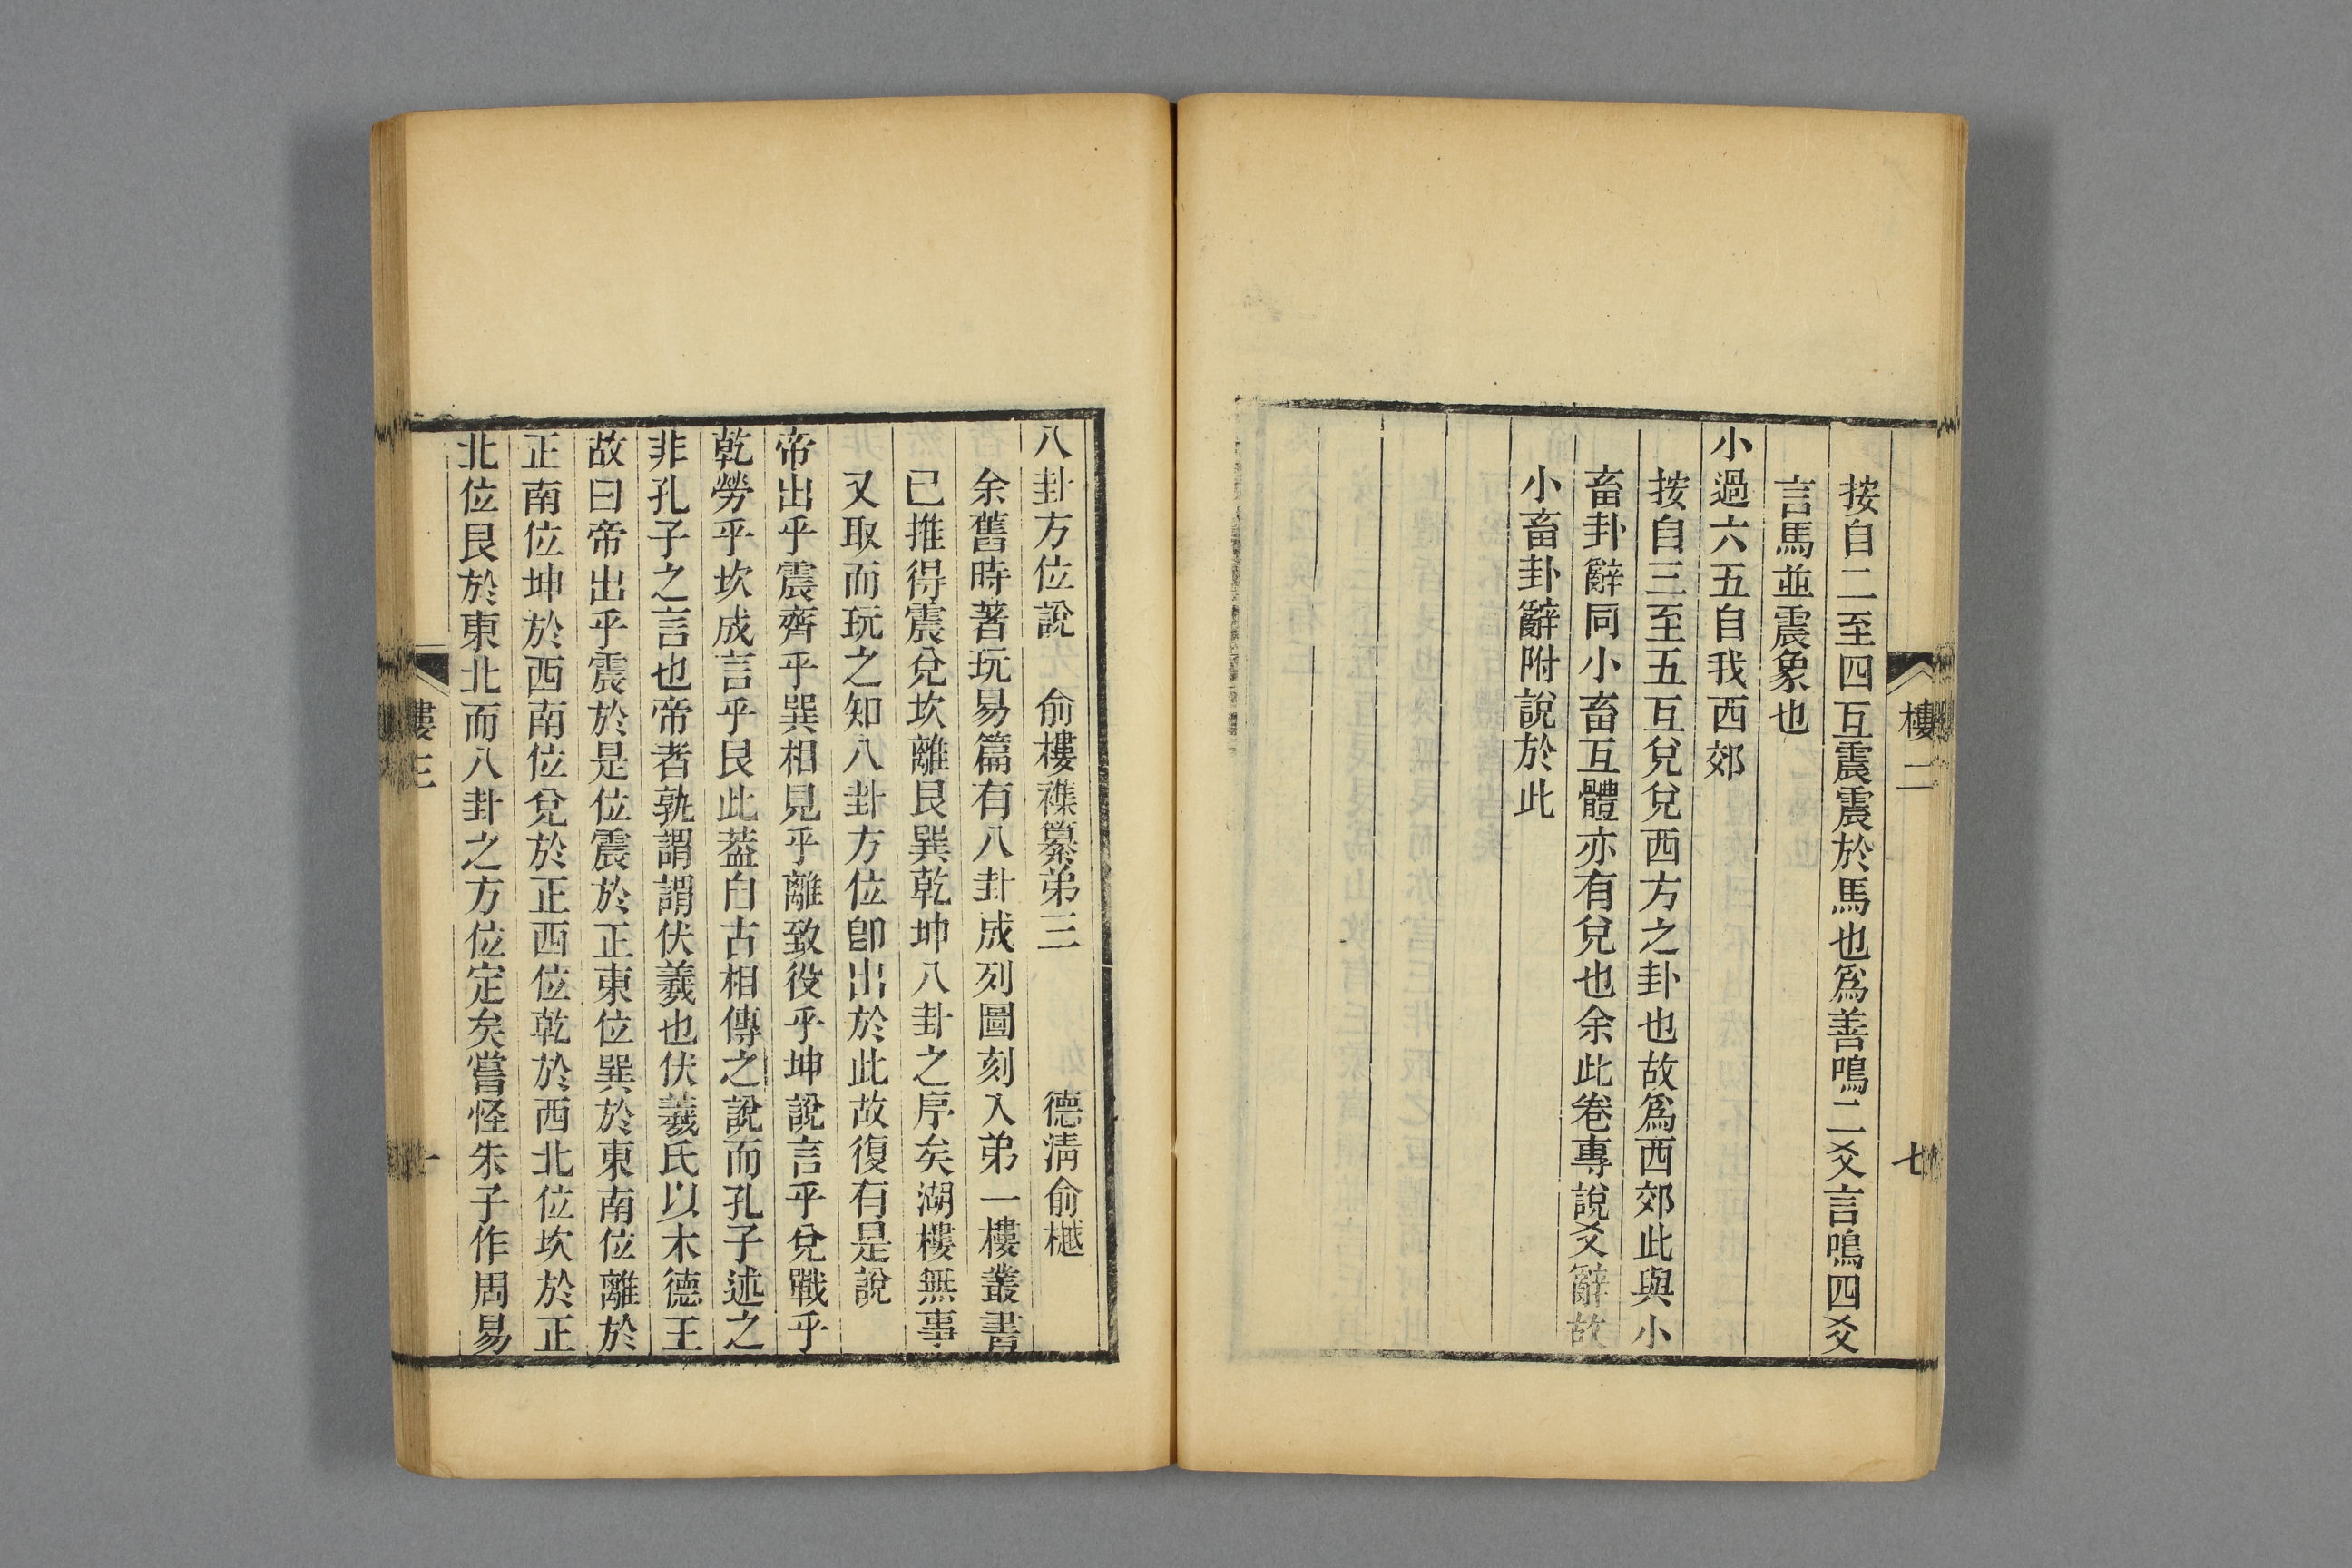 樓二
七
按自二至四互震震於馬也爲善鳴二爻言鳴四爻
言馬並震象也
小過六五自我西郊
按自三至五互兌兌西方之卦也故爲西郊此與小
畜卦辭同小畜互體亦有兌也余此卷專說爻辭故
小畜卦辭附說於此
八卦方位說 俞樓襍纂弟三 德清俞樾
余舊時著玩易篇有八卦成列圖刻入弟一樓叢書
已推得震兌坎離艮巽乾坤八卦之序矣湖樓無事
又取而玩之知八卦方位卽出於此故復有是說
帝出乎震齊乎巽相見乎離致役乎坤說言乎兌戰乎
乾勞乎坎成言乎艮此葢自古相傳之說而孔子述之
非孔子之言也帝者孰謂謂伏羲也伏羲氏以木德王
故曰帝出乎震於是位震於正東位巽於東南位離於
正南位坤於西南位兌於正西位乾於西北位坎於正
北位艮於東北而八卦之方位定矣嘗怪朱子作周易
樓三
一